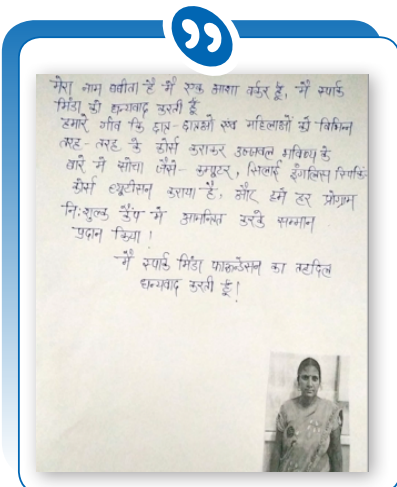 मेरा नाम बबीता है मैं एक आशा वर्कर हूँ, मैं स्पार्क
मिंडा की धन्यवाद करती हूँ
हमारे गाँव कि छात्र-छात्राओ एवं महिलाओं को विभिन्न
तरह-तरह के कोर्स कराकर उज्जवल भविष्य के
बारे में सोचा जैसे- कम्प्यूटर, सिलाई इंगलिस स्पिकिंग
कोर्स ब्यूटीसन कराया है, और हमे हर प्रोग्राम
नि:शुल्क कैंप में आमंत्रित करके सम्मान
प्रदान किया!
मैं स्पार्क मिंडा फाऊन्डेसन का तहदिल
धन्यवाद करती हूँ!